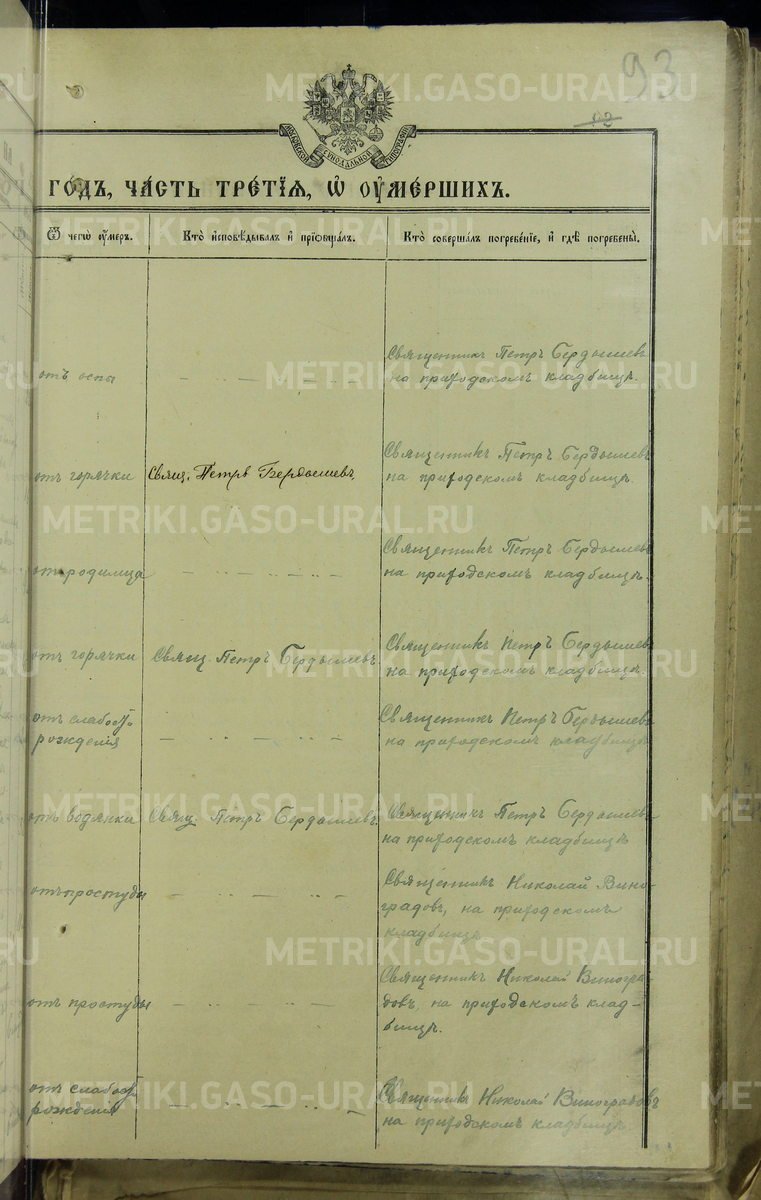 93
92
МОСКОВСКОЙ СѴНОДАЛЬНОЙ ТИПОГРАФІИ
ГО́ДЪ, ЧА́СТЬ ТРЕ́ТІѦ, Ѡ҆ ОУ҆МЕ́РШИХЪ.
Ѿ чегѡ̀ оу҆́меръ.
Кто̀ и҆сповѣ́дывалъ и҆ прїѻбща́лъ.
Кто̀ соверша́лъ погребе́нїе, и҆ гдѣ̀ погребены̀.
отъ оспы
Священникъ Петръ Бердышевъ
на приходскомъ кладбищѣ.
отъ горячки
Свящ. Петръ Бердышевъ,
Священникъ Петръ Бердышевъ
на приходскомъ кладбищѣ.
отъ родимца
Священникъ Петръ Бердышевъ
на приходскомъ кладбищѣ.
отъ горячки
Свящ. Петръ Бердышевъ
Священникъ Петръ Бердышевъ
на приходскомъ кладбищѣ.
отъ слабост.
рожденія
Священникъ Петръ Бердышевъ
на приходскомъ кладбищѣ
отъ водянки
Свящ. Петръ Бердышевъ.
Священникъ Петръ Бердышевъ
на приходскомъ кладбищѣ
отъ простуды
Священникъ Николай Вино-
градовъ, на приходскомъ
кладбищѣ
отъ простуды
Священникъ Николай Виногра-
довъ, на приходскомъ клад-
бищѣ.
отъ слабост.
рожденія
Священникъ Николай Виноградовъ
на приходскомъ кладбищѣ.
METRIKI.GASO-URAL.RU